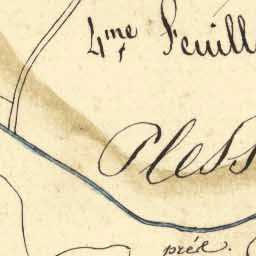 4.me Feuill
Pless
préd.